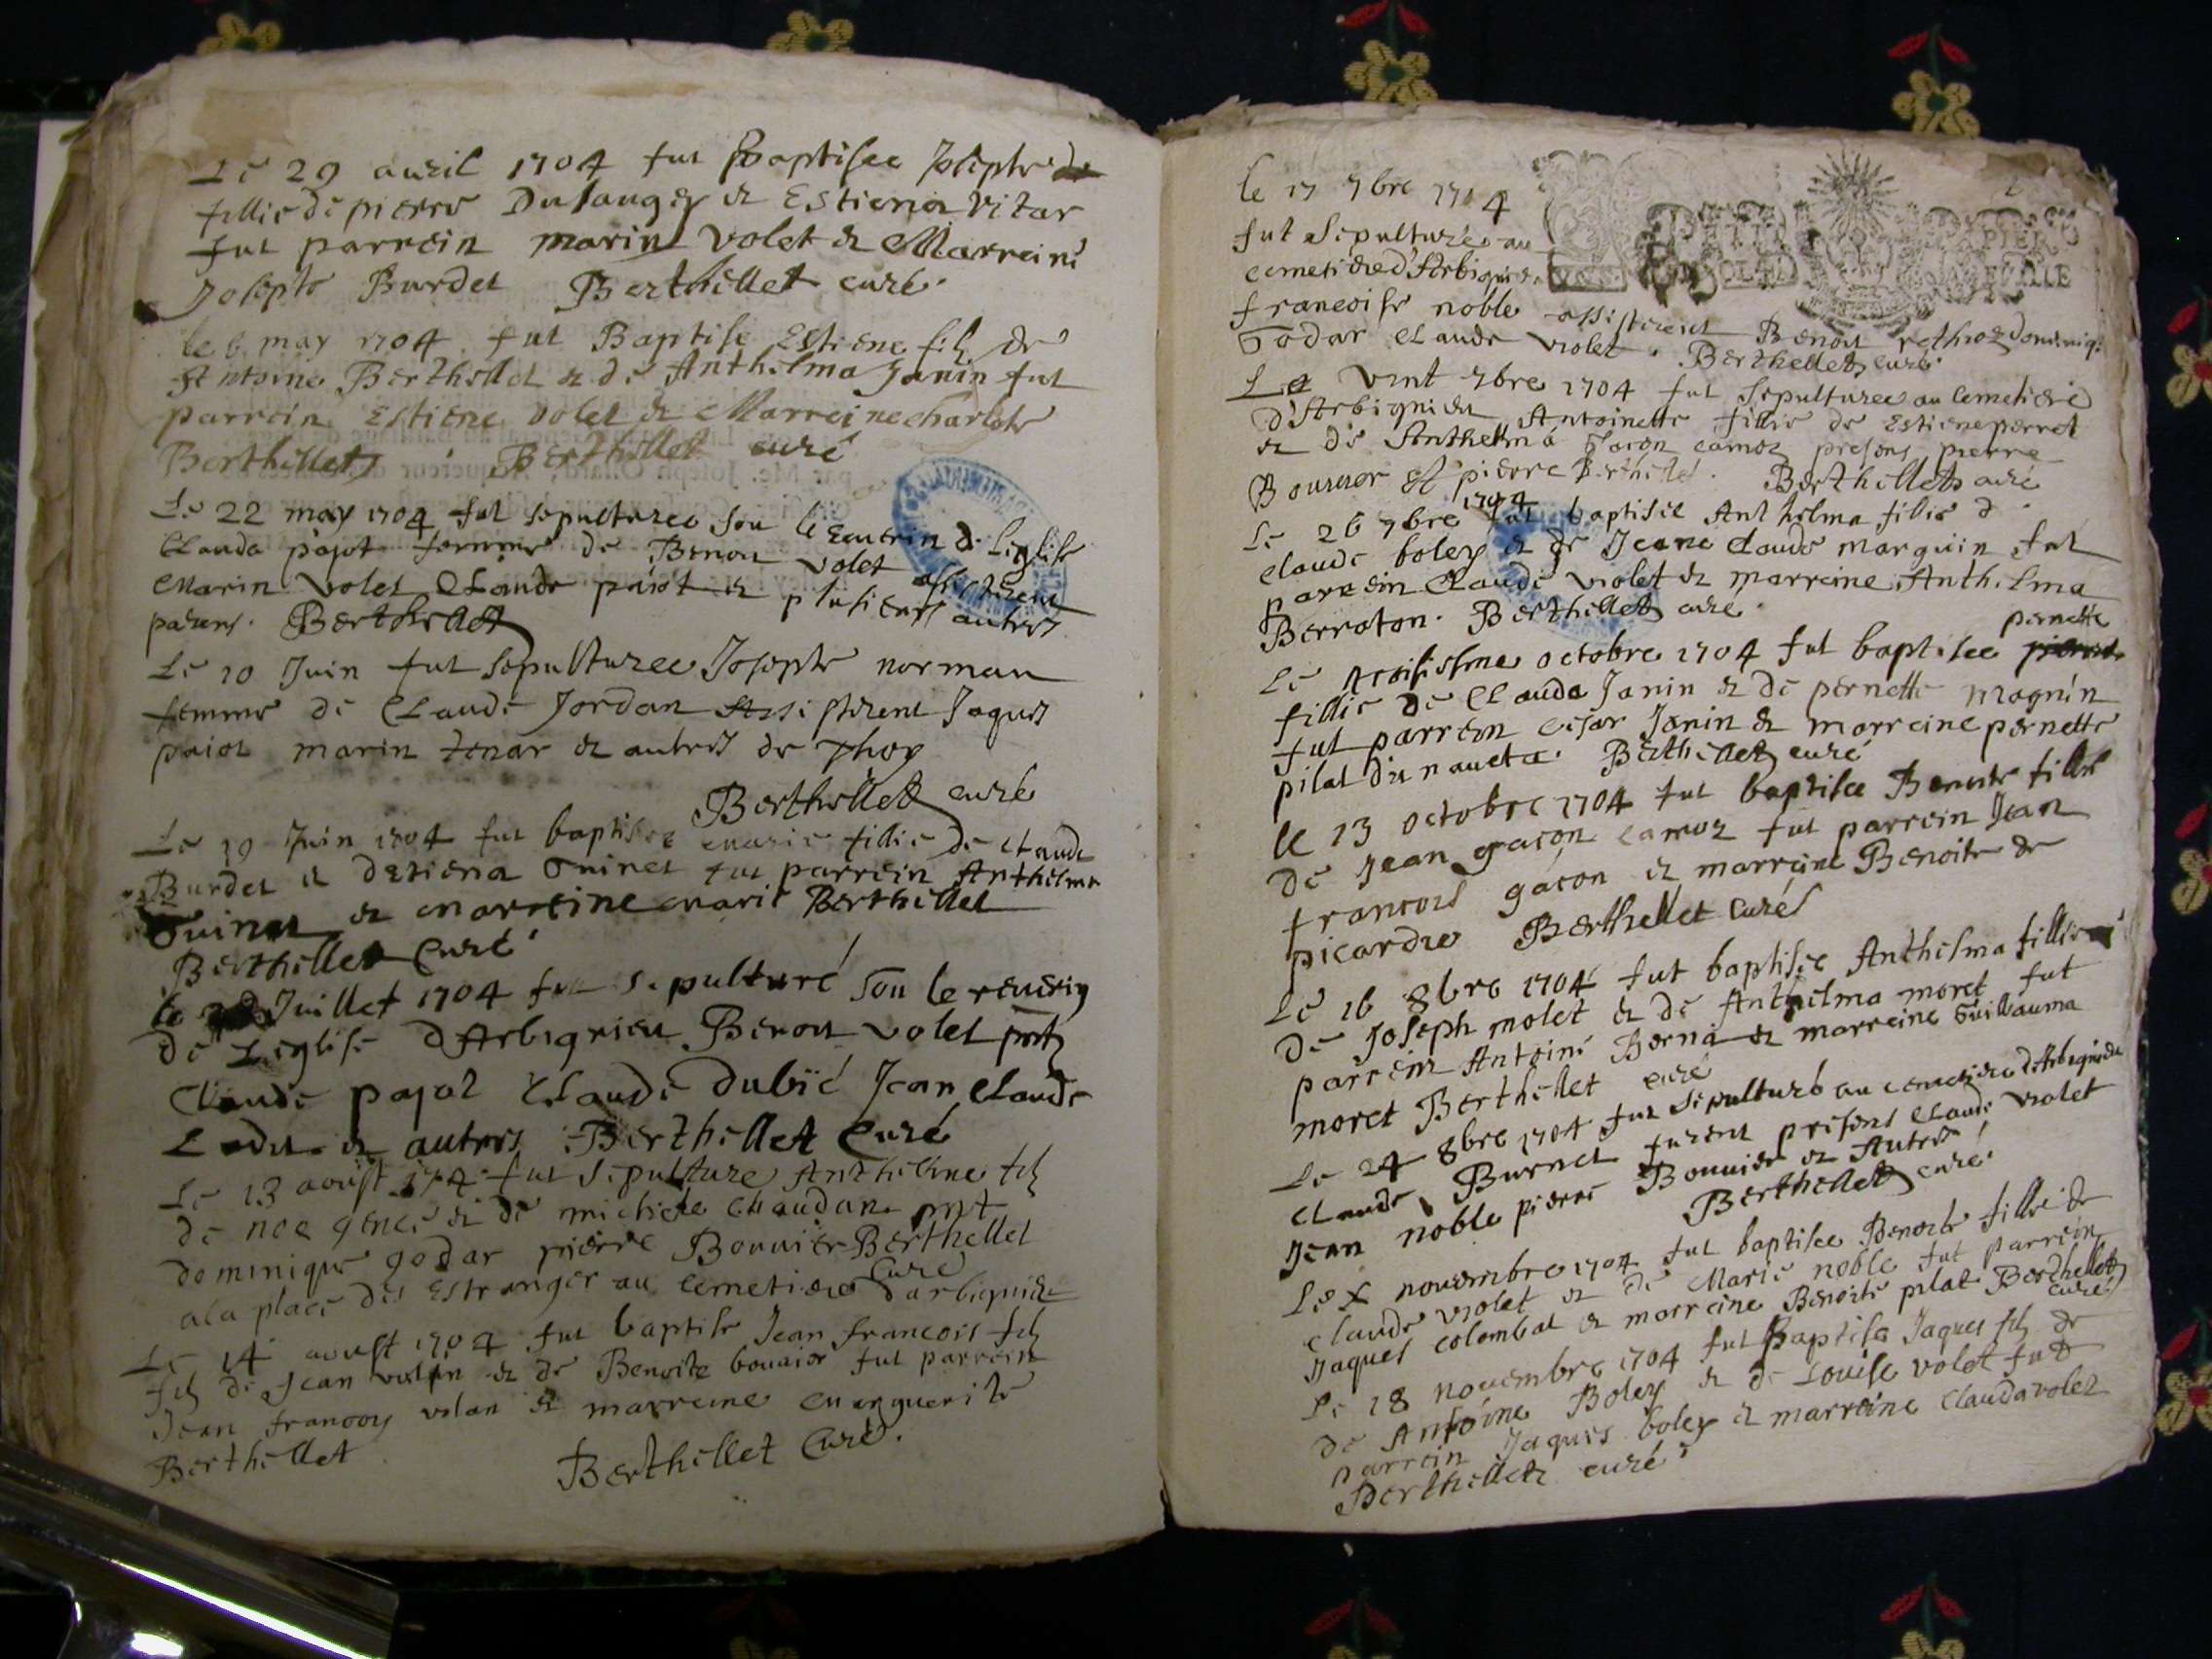 Le 29 auril 1704 fut Baptisee Josephe
fillie de pierre Dusauger et Estiena vitar
fut parrein marin volet et Marreine
Josephe Burdet Berthellet curé
le 6 may 1704 fut Baptise Estiene filz de
Antoine Berthellet et de Anthelma Janin fut
parrein Estiene volet et Marreine charlote
Berthellet Berthellet curé
Le 22 may 1704 fut sepulturee sou le de leglise
Clauda pajot femme de Benoit volet assisterent
Marin volet Claude paiot et plusieurs autres
parens. Berthellet
Le 10 Juin fut sepulturee Josephe norman
femme de Claude Jordan Assisterent Jaques
paiot marin tenar et autres de
Berthellet curé
Le 19 Juin 1704 fut baptisee marie fillie de claude
Burdet et destiena Guinet fut parrein Anthelme
Guinet et marreine marie Berthellet
Berthellet Curé
le Juillet 1704 fut sepulturé sou le
de Leglise dArbignieu Benoit volet pntz
Claude pajot Claude dubié Jean Claude
et autres Berthellet Curé
Le 13 aoust 1704 fut sepulture Anthelme filz
de noe gene et de michiele chaudan pnt
dominique godar pierre Bouuier Berthellet
Curé
a la place des Estranger au cemetiere darbignieu
Le 14 aoust 1704 fut baptise Jean francois filz
filz de Jean volan et de Benoite bouuier fut parrein
Jean francois volan et marreine marguerite
Berthellet
Berthellet Curé.
le 17 7bre 1704
fut sepulturée au
cemetiere d'Arbignieu
francoise noble assisterent Benoit dominiq.
Godar Claude violet. Berthellet curé
Le vint 7bre 1704 fut sepulturee au cemetiere
d'Arbignieu Antoinette fillie de Estiene perret
et de Anthelma Gacon camoz presens pierre
Bouuier et pierre Berthellet. Berthellet curé
1704
Le 26 7bre fut baptisee Anthelma fillie d
claude boley et de Jeane Claude marguin fut
parrein Claude violet et marreine Anthelma
Berraton. Berthellet curé
pernette
Le troisiesme octobre 1704 fut baptisee
fillie de Clauda Janin et de pernette magnin
fut parrein cesar Janin et marreine pernette
pilat Berthellet curé
le 13 octobre 1704 fut baptisee Benoite fillie
de Jean gacon camoz fut parrein Jean
francois gacon et marreine Benoite de
picardie Berthellet Curé
Le 16 8bre 1704 fut baptisee Anthelma fillie
de Joseph molet et de Anthelma moret fut
parrein Antoine Berna et marreine Guillauma
moret Berthellet curé
Le 24 8bre 1704 fut sepulturé au cemetiere dArbignieu
claude Burnet furent presens Claude violet
Jean noble pierre Bouuier et Autres
Berthellet curé.
Le X nouembre 1704 fut baptisee Benoite fillie de
claude violet et de Marie noble fut parrein
Jaques colombat et marreine Benoite pilat Berthellet
curé
Le 18 nouembre 1704 fut Baptise Jaques filz de
de Antoine Boley et de Louise volet fut
parrein Jaques boley et marreine Clauda volet
Berthellet curé